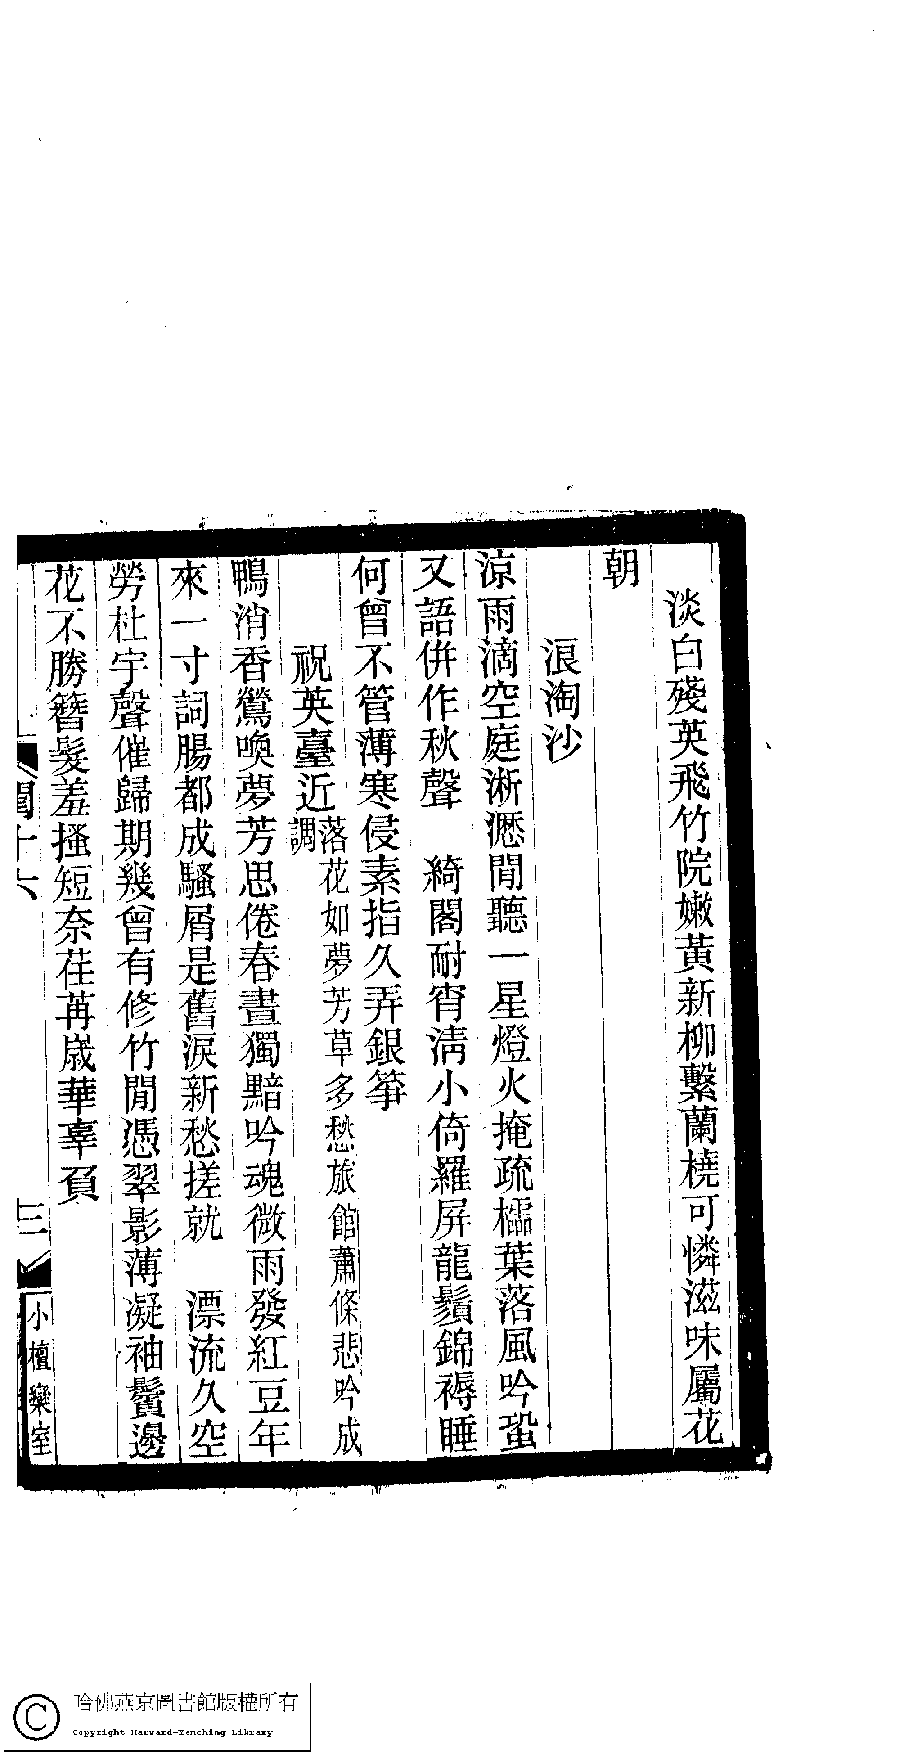 淡白殘英飛竹院嫩黃新柳繫蘭橈可憐滋味屬花
朝
浪淘沙
涼雨滴空庭淅瀝閒聽一星燈火掩疏櫺葉落風吟蛩
又語併作秋聲　綺閣耐宵淸小倚羅屏龍鬚錦褥睡
何曾不管薄寒侵素指久弄銀箏
祝英臺近落花如夢芳草多愁旅館蕭條悲吟成
調
鴨消香鶯喚夢芳思倦春晝獨黯吟魂微雨發紅豆年
來一寸詞腸都成騷屑是舊淚新愁搓就　漂流久空
勞杜宇聲催歸期幾曾有修竹閒憑翠影薄凝袖鬢邊
花不勝簪髮羞搔短奈荏苒歲華辜負
閨十六
三
小檀欒室
哈佛燕京圖書館版權所有
Copyright Harvard-Yenching Library